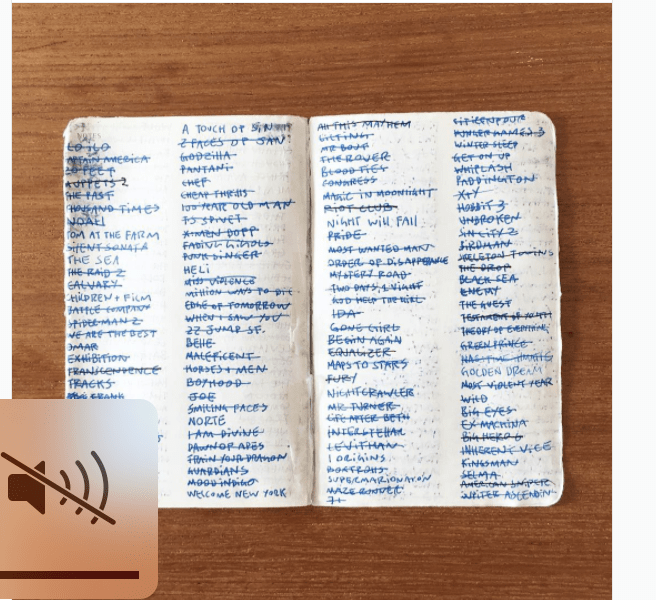 LOCKE
CAPTAIN AMERICA
20 FEET
MUPPETS 2
THE PAST
THOUSAND TIMES
NOAH
TOM AT THE FARM
SILENT SONATA
THE SEA
THE RAID 2
CALVARY
CHILDREN + FILM
BATTLE COMPANY
SPIDERMAN 2
WE ARE THE BEST
OMAR
EXHIBITION
TRANSCENDENCE
TRACKS
FRANK
A TOUCH OF SIN
2 FACES OF JAN
GODZILLA
PANTANI
CHEF
CHEAP THRILLS
100 YEAR OLD MAN
TS SPIVET
X:MEN DOFP
FADING GIGOLO
PUNK SINGER
HELI
MISS VIOLENCE
MILLION WAYS TO DIE
EDGE OF TOMORROW
WHEN I SAW YOU
22 JUMP ST.
BELLE
MALEFICENT
HORSES + MEN
BOYHOOD
JOE
SMILING FACES
NORTE
I AM DIVINE
DAWN OF APES
TRAIN YOUR DRAGON
GUARDIANS
MOOD INDIGO
WELCOME NEW YORK
ALL THIS MAYHEM
LILTING
MR
THE ROVER
BLOOD TIES
CONGRESS
MAGIC IN MOONLIGHT
RIOT CLUB
NIGHT WILL FALL
PRIDE
MOST WANTED MAN
ORDER OF DISAPPEARANCE
MYSTERY ROAD
TWO DAYS, 1 NIGHT
GOD HELP THE GIRL
IDA
GONE GIRL
BEGIN AGAIN
EQUALIZER
MAPS TO STARS
FURY
NIGHTCRAWLER
MR TURNER
LIFE AFTER BETH
INTERSTELLAR
LEVIATHAN
I ORIGINS
BOXTROLLS
SUPERMARIONATION
MAZE RUNNER
71
CITIZENFOUR
HUNGER GAMES 3
WINTER SLEEP
GET ON UP
WHIPLASH
PADDINGTON
X+Y
HOBBIT 3
UNBROKEN
SIN CITY 2
BIRDMAN
SKELETON TWINS
THE DROP
BLACK SEA
ENEMY
THE GUEST
TESTAMENT OF YOUTH
THEORY OF EVERYTHING
GREEN PRINCE
GOLDEN DREAM
MOST VIOLENT YEAR
WILD
BIG EYES
EX MACHINA
BIG HERO 6
INHERENT VICE
KINGSMAN
SELMA
AMERICAN SNIPER
JUPITER ASCENDING